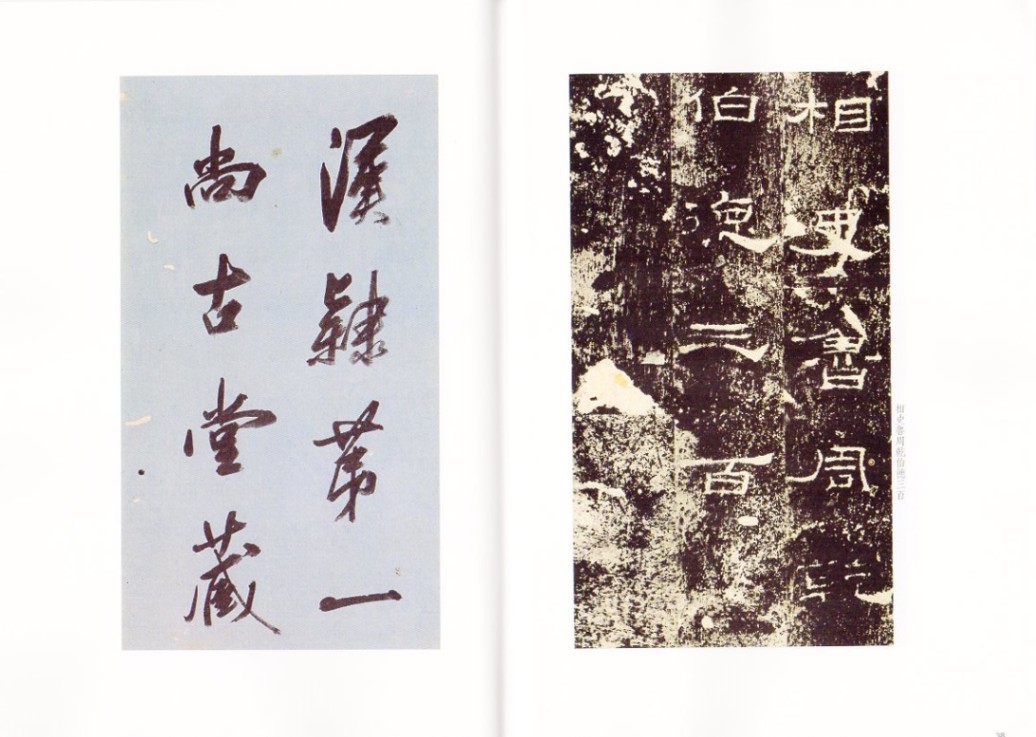 相史魯周乾
伯德三百
相史魯周乾伯德三百
漢隸第一
尚古堂藏